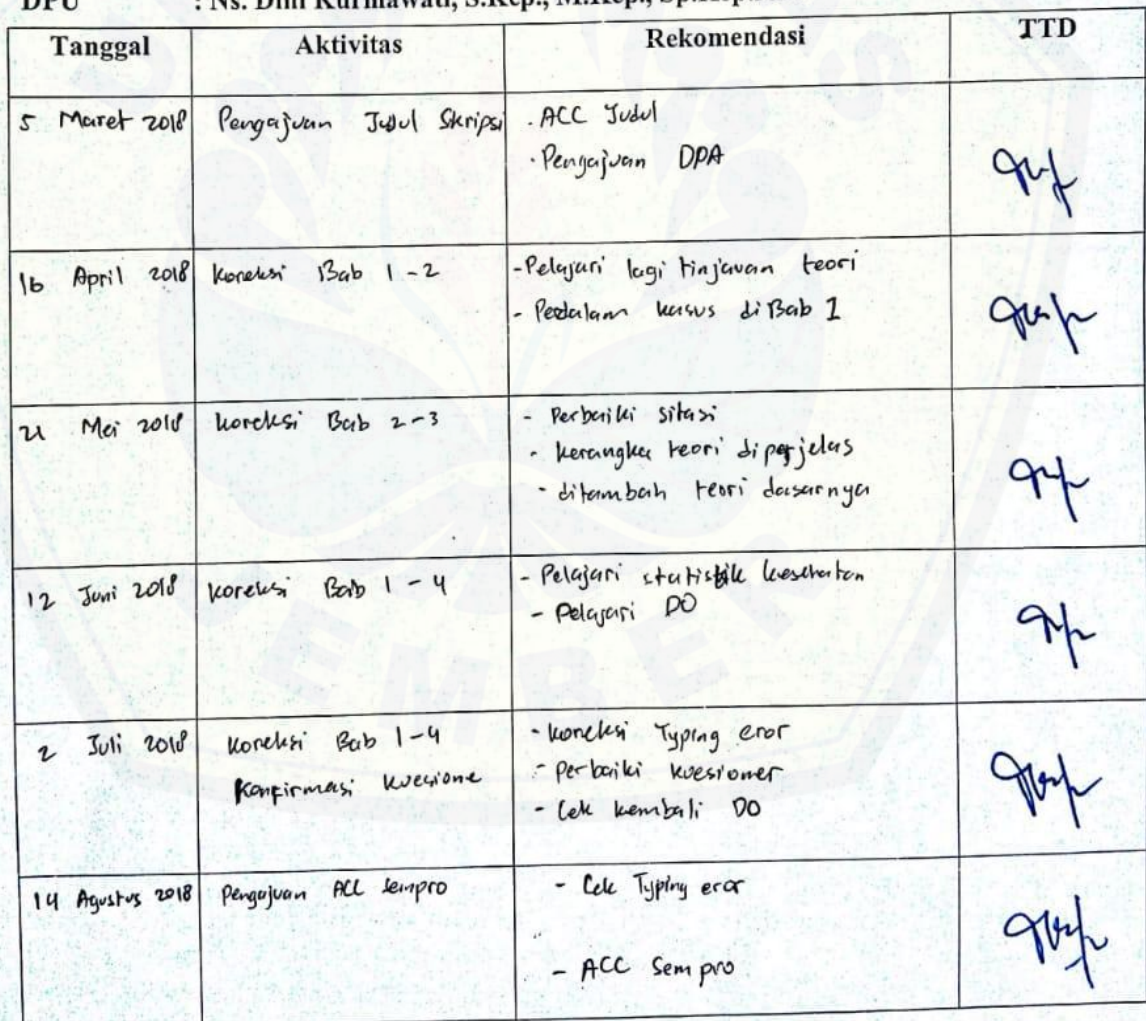 DPU : Ns. Dini Kurniawati, S.Kep., M.Kep., Sp.Kep.
Tanggal Aktivitas Rekomendasi TTD
5 Maret 2018 Pengajuan Judul Skripsi - ACC Judul
- Pengajuan DPA
16 April 2018 Koreksi Bab 1-2 - Pelajari lagi tinjauan teori
- Perdalam kasus di Bab 1
21 Mei 2018 Koreksi Bab 2-3 - Perbaiki sitasi
- kerangka teori diperjelas
- ditambah teori dasarnya
12 Juni 2018 Koreksi Bab 1-4 - Pelajari statistik kesehatan
- Pelajari DO
2 Juli 2018 Koreksi Bab 1-4 - Koreksi Typing eror
Konfirmasi kuesione - Perbaiki kuesioner
- Cek kembali DO
14 Agustus 2018 Pengajuan ACC Sempro - Cek Typing eror
- ACC Sempro
JEMBER